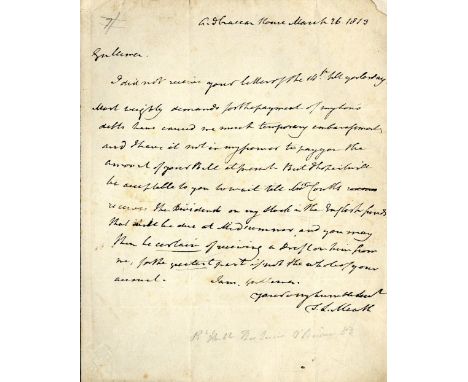 Ardbraccan House March 26. 1813
Gentlemen.
I did not receive your letter of the 14th till yesterday
Most weighty demands for the payment of my Son's
debts have caused me much temporary embarassment,
and I have it not in my power to pay you the
amount of your Bill at present But I hope it will
be acceptable to you to wait till Coutts
receives the Dividends on my Stock in the English funds
that will be due at Midsummer, and you may
then be certain of receiving a Draft on him from
me, for the greatest part if not the whole of your
account. I am, Gentlemen.
your very humble Servt
T. L. Meath